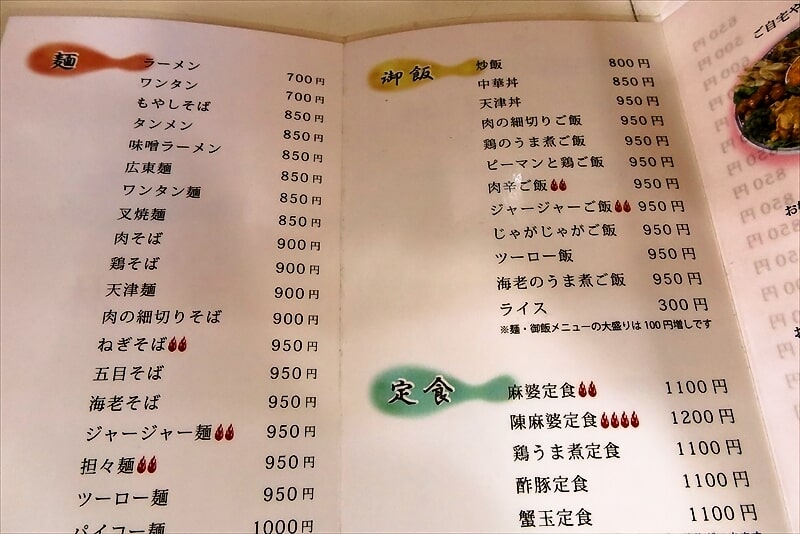 麺
ラーメン 700円
ワンタン 700円
もやしそば 850円
タンメン 850円
味噌ラーメン 850円
広東麺 850円
ワンタン麺 850円
叉焼麺 850円
肉そば 900円
鶏そば 900円
天津麺 900円
肉の細切りそば 900円
ねぎそば 950円
五目そば 950円
海老そば 950円
ジャージャー麺 950円
担々麺 950円
ツーロー麺 950円
パイコー麺 1000円
御飯
炒飯 800円
中華丼 850円
天津丼 950円
肉の細切りご飯 950円
鶏のうま煮ご飯 950円
ピーマンと鶏ご飯 950円
肉辛ご飯 950円
ジャージャーご飯 950円
じゃがじゃがご飯 950円
ツーロー飯 950円
海老のうま煮ご飯 950円
ライス 300円
※麺・御飯メニューの大盛りは100円増しです
定食
麻婆定食 1100円
陳麻婆定食 1200円
鶏うま煮定食 1100円
酢豚定食 1100円
蟹玉定食 1100円
ご自宅や